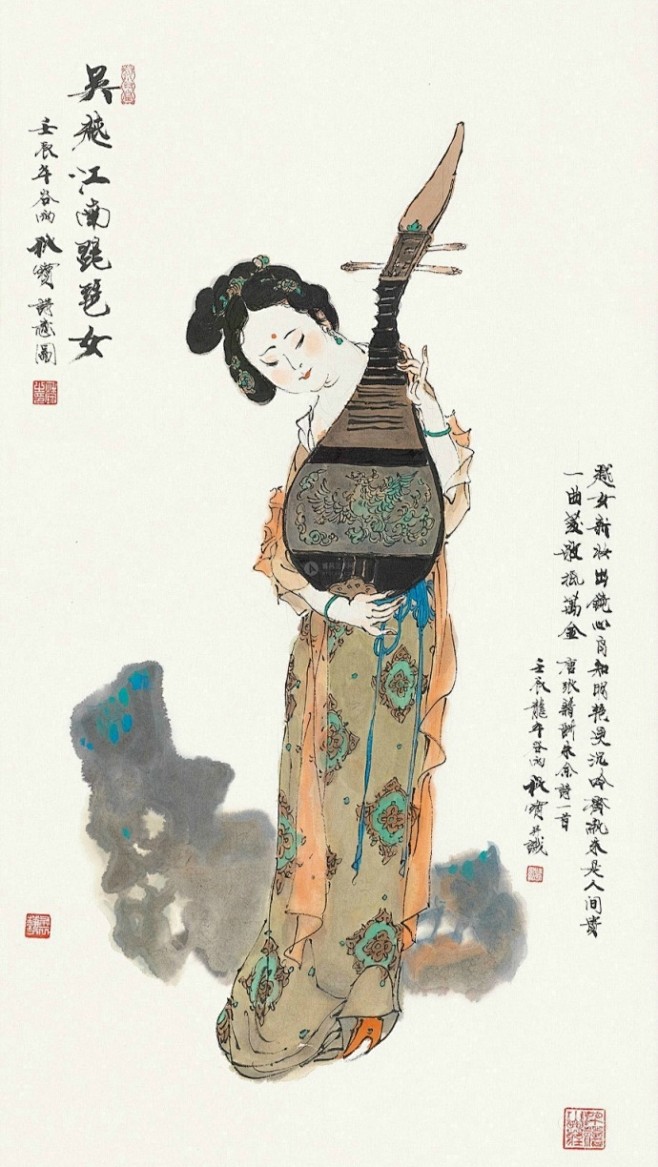 吳越江南琵琶女
壬辰年谷雨 秋寶 詩意圖
越女新妝出鏡心自知明艷更沉吟齊紈未是人間貴
一曲菱歌抵萬金 唐張籍酬朱余詩一首
壬辰龍年谷雨 秋寶并識